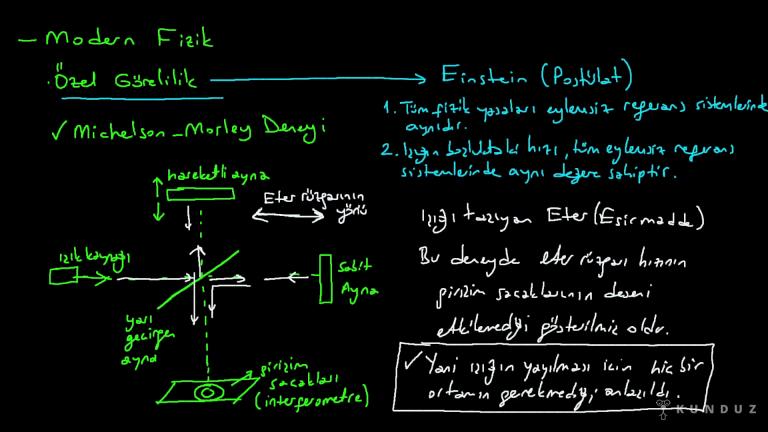 - Modern Fizik
· Özel Görelilik → Einstein (Postülat)
1. Tüm fizik yasaları eylemsiz referans sistemlerinde
aynıdır.
2. Işığın boşluktaki hızı, tüm eylemsiz referans
sistemlerinde aynı değere sahiptir.
✓ Michelson-Morley Deneyi
hareketli ayna
Eter rüzgarının
yönü
ışık kaynağı
Sabit
Ayna
yarı
geçirgen
ayna
girişim
saçakları
(interferometre)
Işığı taşıyan Eter (Esir madde)
Bu deneyde eter rüzgarı hızının
girişim saçaklarının deseni
etkilemediği gösterilmiş oldu.
✓ Yani ışığın yayılması için hiç bir
ortamın gerekmediği anlaşıldı.
KUNDUZ